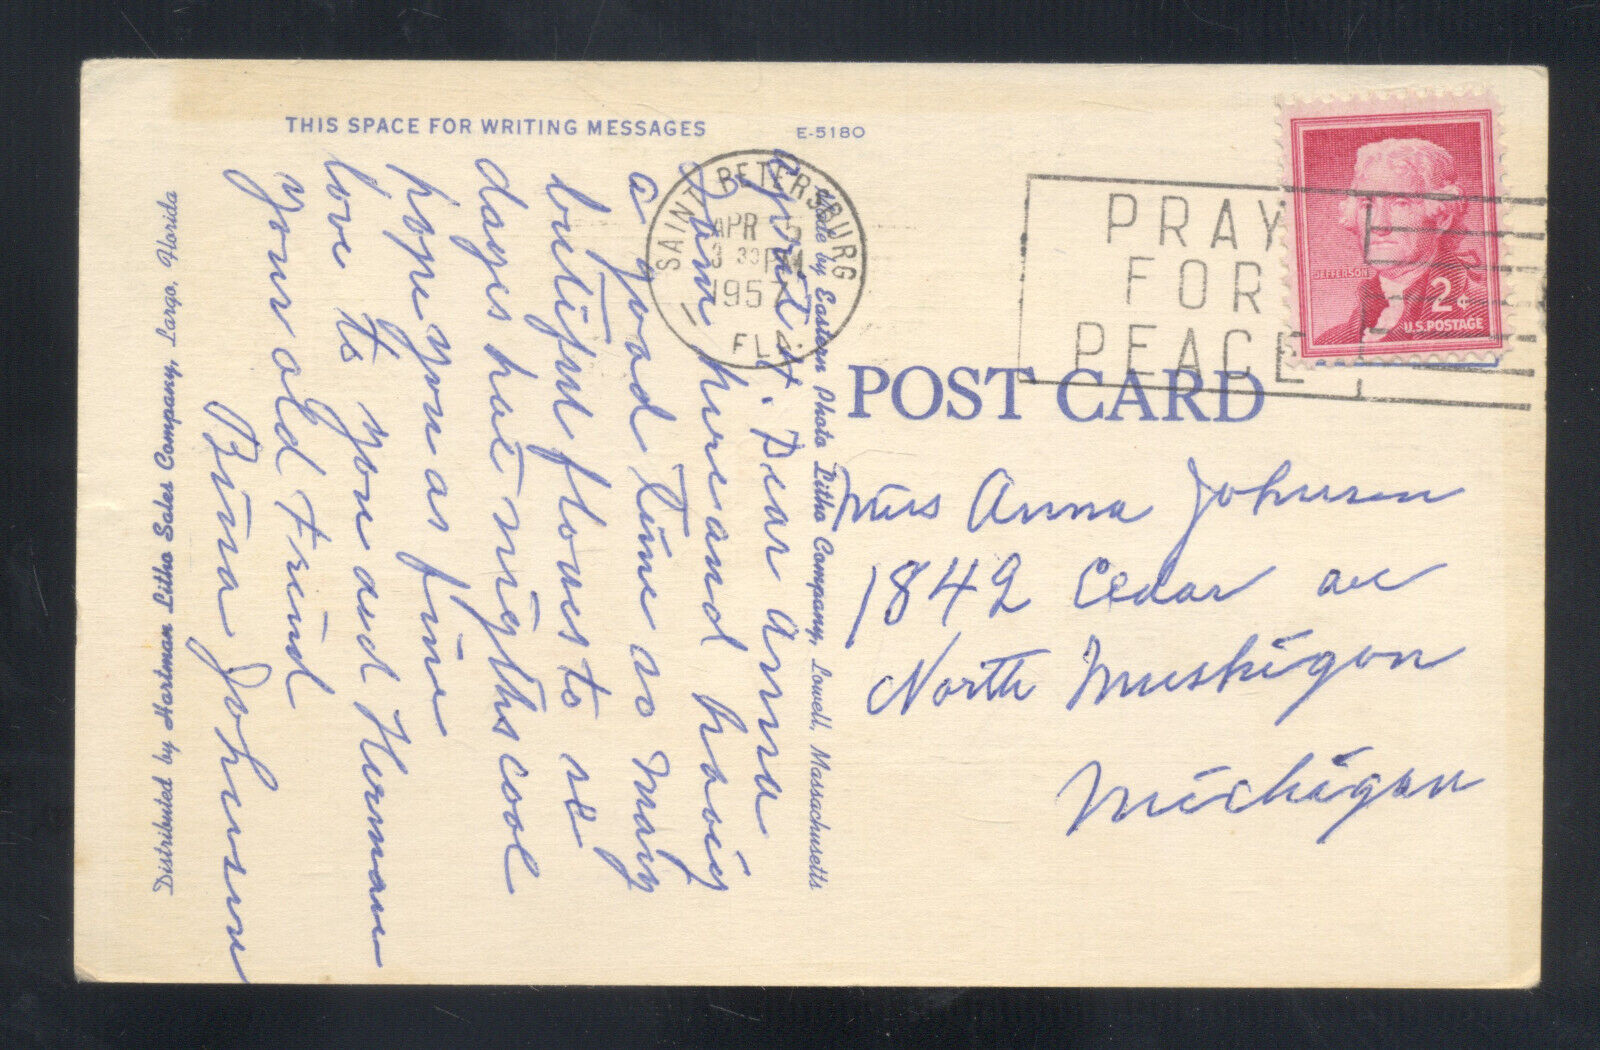 THIS SPACE FOR WRITING MESSAGES
E-5180
SAINT PETERSBURG
APR 5
3 30 PM
1957
FLA.
PRAY
FOR
PEACE
JEFFERSON
2¢
U.S. POSTAGE
POST CARD
April 5. Dear Anna
I am hire and havig
a good time so many
butiful flowes to se
dayes hot nights cool
hope you as fine
love to you and Herman
your old Freind
Bina Johnson
Miss Anna Johnson
1842 Cedar av
North Muskigon
Michigan
Made by Eastern Photo Litho Company, Lowell, Massachusetts
Distributed by Hartman Litho Sales Company, Largo, Florida